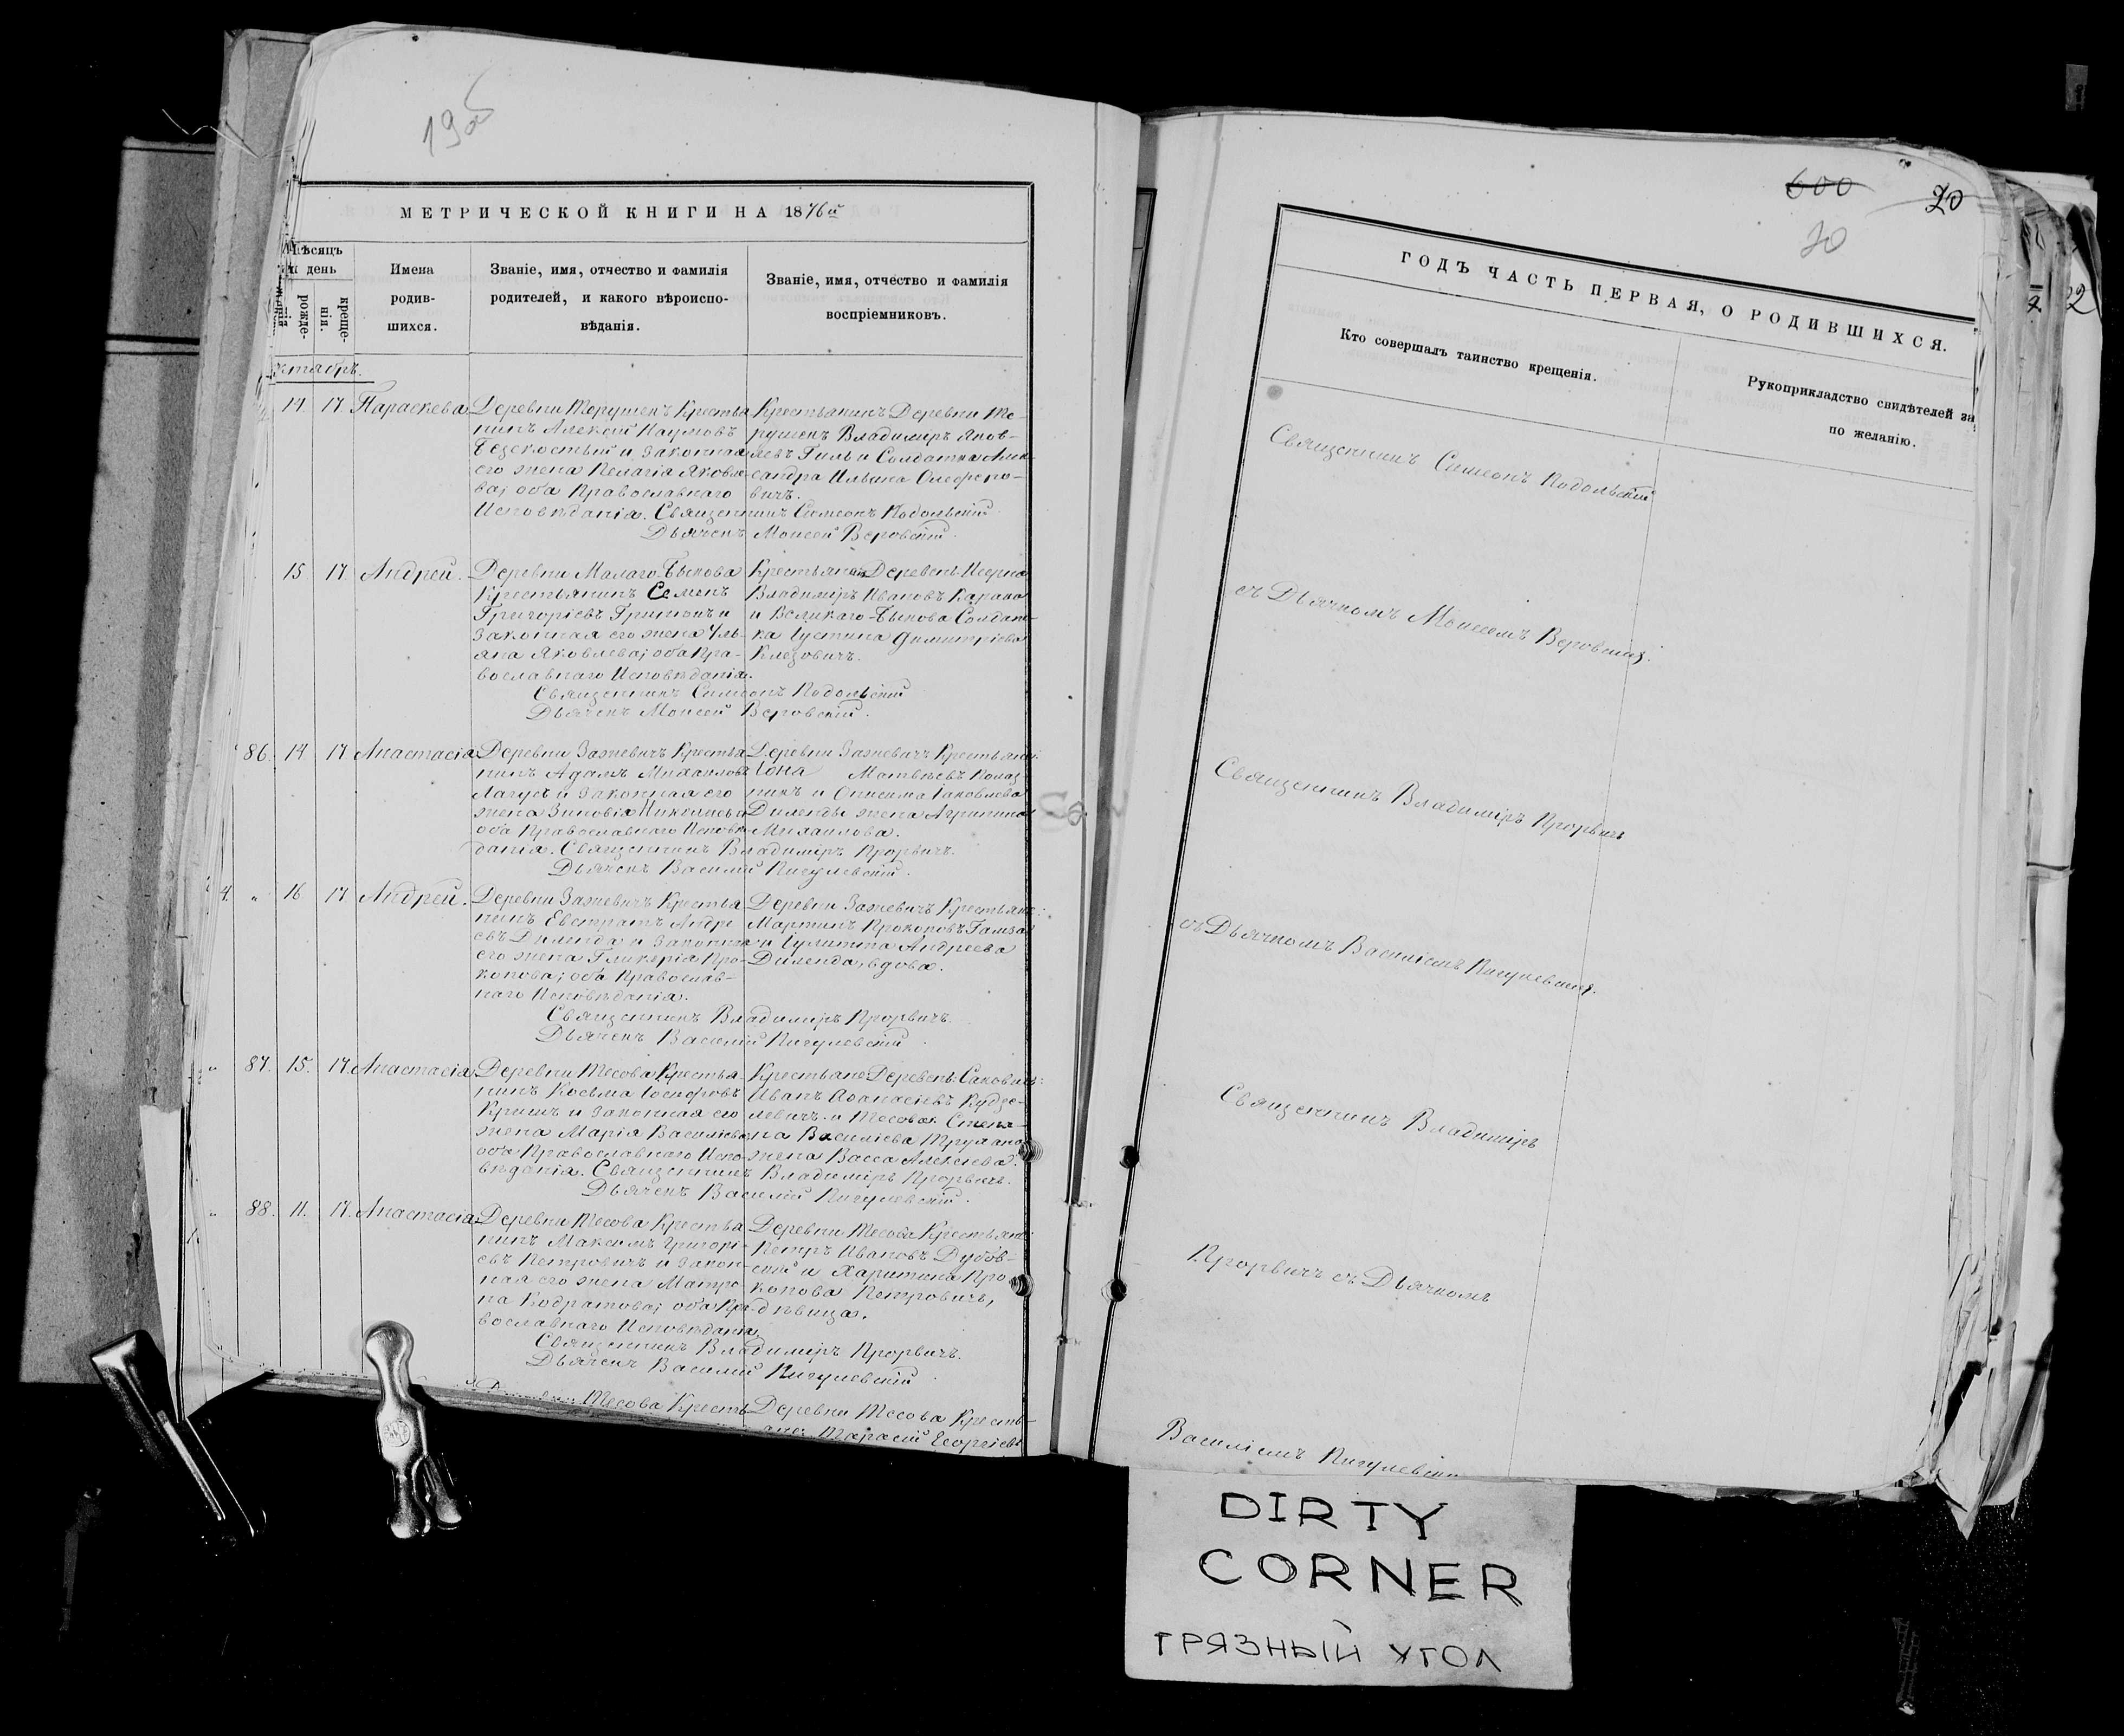 19об
МЕТРИЧЕСКОЙ КНИГИ НА 1876й
Мѣсяцъ
и день
рожде-
нія
креще-
нія.
Имена
родив-
шихся.
Званіе, имя, отчество и фамилія
родителей, и какого вѣроиспо-
вѣданія.
Званіе, имя, отчество и фамилія
воспріемниковъ.
14. 17. Параскева Деревни Терушекъ Крестья
нинъ Алексѣй Наумовъ
и законная
его жена Пелагія Яковле
ва; оба Православнаго
Исповѣданія. Священникъ Симеонъ Подольскій
Дьячекъ Моисей Веровскій.
Крестьянинъ Деревни Те-
рушекъ Владиміръ Яков-
левъ Гиль и Солдатка Алек
сандра Ильина Олеферо-
вичъ.
15 17. Андрей. Деревни Малаго-Быкова
Крестьянинъ Семенъ
Григоріевъ и
законная его жена Уль-
яна Яковлева; оба Пра-
вославнаго Исповѣданія.
Священникъ Симеонъ Подольскій
Дьячекъ Моисей Веровскій.
Крестьяне Деревень:
Владиміръ Ивановъ
и Великаго-Быкова Солдат-
ка Іустина Димитріева
Клезовичъ.
86. 14 17 Анастасія Деревни Зажевичъ Крестья
нинъ Адамъ Михаиловъ
Лагунъ и законная его
жена Зиновія Николаева
оба Православнаго Исповѣ
данія. Священникъ Владиміръ Прорвичъ.
Дьячекъ Василій Пигулевскій.
Деревни Зажевичъ Крестьяне:
Іона Матвѣевъ
и Онисима Іаковлева
Диленды жена Агрипина
Михаилова.
4. " 16 17. Андрей. Деревни Зажевичъ Крестья
нинъ Евстратъ Андре
евъ Диленда и законная
его жена Гликерія Про-
копова; оба Православ-
наго Исповѣданія.
Священникъ Владиміръ Прорвичъ.
Дьячекъ Василій Пигулевскій.
Деревни Зажевичъ Крестьяне:
Мартинъ Прокоповъ
и Іулитта Андреева
Диленда, вдова.
" 87. 15. 17. Анастасія Деревни Тесова Крестья
нинъ Косьма Іосифовъ
и законная его
жена Марія Василіева
оба Православнаго Испо-
вѣданія. Священникъ Владиміръ Прорвичъ.
Дьячекъ Василій Пигулевскій.
Крестьяне Деревень:
Иванъ Аѳанасіевъ Кудзе-
левичъ и Тесова:
Василіева
жена Васса Алексіева.
" 88. 11. 17. Анастасія Деревни Тесова Крестья
нинъ Максимъ Григорі-
евъ Петровичъ и закон-
ная его жена Матро
на Кодратова; оба Пра-
вославнаго Исповѣданія.
Священникъ Владиміръ Прорвичъ.
Дьячекъ Василій Пигулевскій
Деревни Тесова Крестьяне:
Петръ Ивановъ Дубов-
скій и Харитина Про
копова Петровичъ,
дѣвица.
Тесова Кресть
Деревни Тесова Кресть-
яне: Тарасій Георгіевъ
600 20
20
ГОДЪ ЧАСТЬ ПЕРВАЯ, О РОДИВШИХСЯ.
Кто совершалъ таинство крещенія.
Рукоприкладство свидѣтелей за
по желанію.
Священникъ Симеонъ Подольскій
съ Дьячкомъ Моисеемъ Веровскимъ.
Священникъ Владиміръ Прорвичъ
съ Дьячкомъ Василіемъ Пигулевскимъ.
Священникъ Владиміръ
Прорвичъ съ Дьячкомъ
Василіемъ Пигулевским
22
DIRTY
CORNER
ГРЯЗНЫЙ УГОЛ